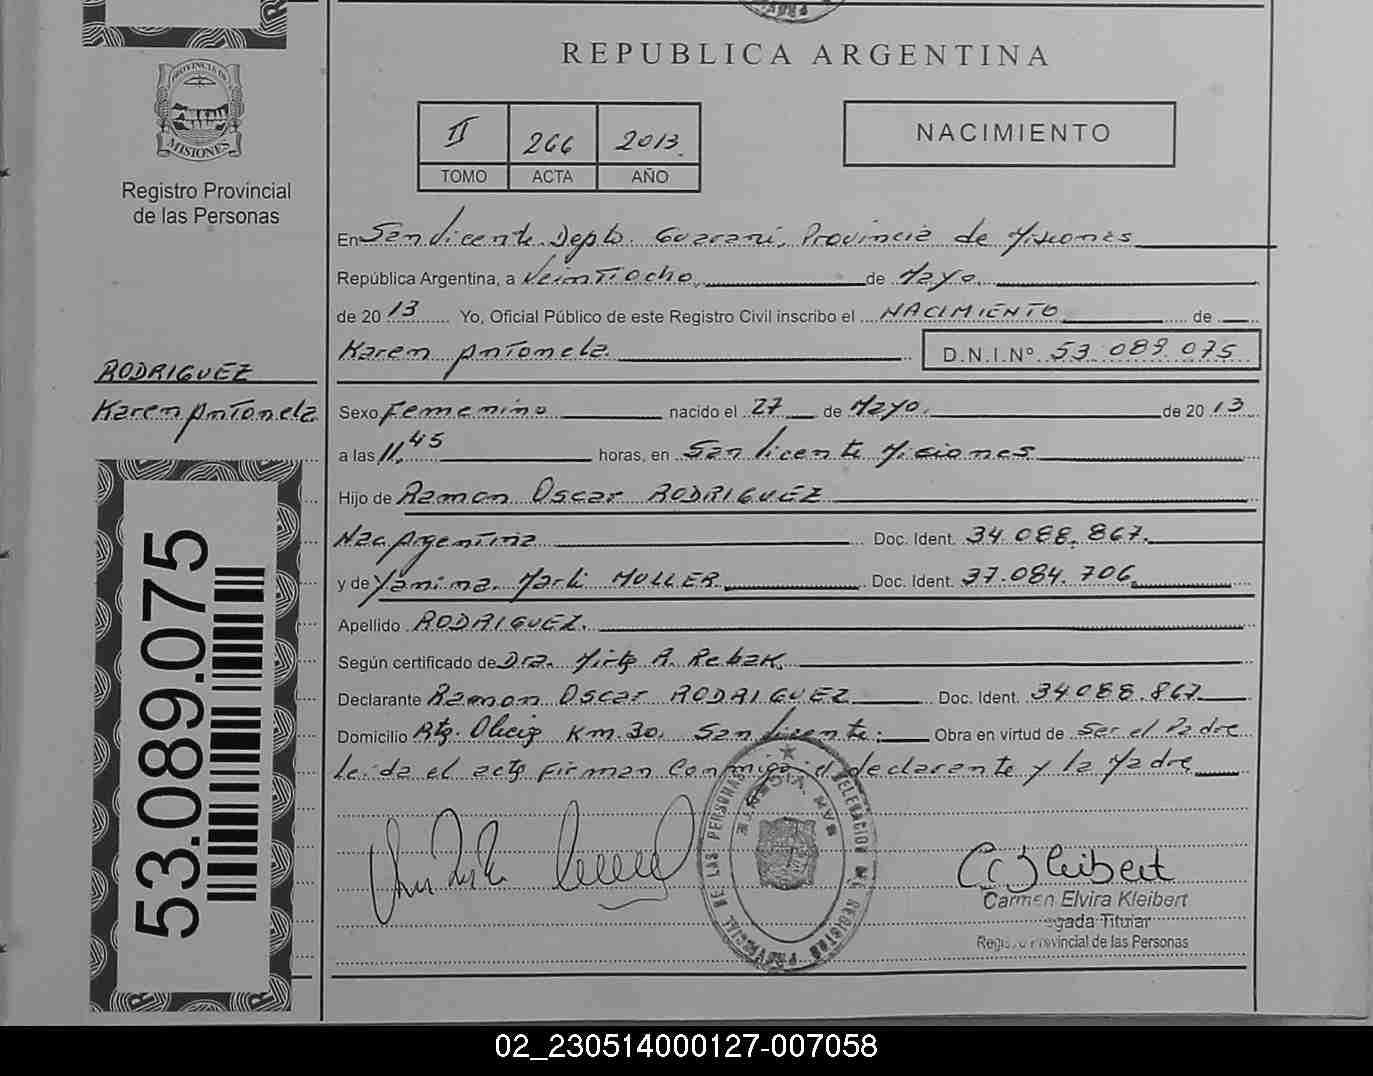 REPUBLICA ARGENTINA
PROVINCIA DE
MISIONES
Registro Provincial
de las Personas
II 266 2013
TOMO ACTA AÑO
NACIMIENTO
En San Vicente Depto. Guarani, Provincia de Misiones
República Argentina, a Veintiocho de Mayo
de 2013 Yo, Oficial Público de este Registro Civil inscribo el NACIMIENTO de
Karen Antonela D.N.I.Nº 53 089 075
RODRIGUEZ
Karen Antonela
Sexo Femenino nacido el 27 de Mayo de 2013
a las 11,45 horas, en San Vicente Misiones
Hijo de Ramon Oscar RODRIGUEZ
Nac Argentina Doc. Ident. 34 088.867.
y de Yanina Marli MULLER Doc. Ident. 37.084.706
Apellido RODRIGUEZ.
Según certificado de Dra. Mirta R.
Declarante Ramon Oscar RODRIGUEZ Doc. Ident. 34088.867
Domicilio Km.30. San Vicente. Obra en virtud de Ser el Padre
Leida el acta Firman Conmigo el declarante y la Madre
53.089.075
SAN VICENTE
DELEGACION DEL REGISTRO PROVINCIAL DE LAS PERSONAS
C Kleibert
Carmen Elvira Kleibert
Titular
Provincial de las Personas
02_230514000127-007058